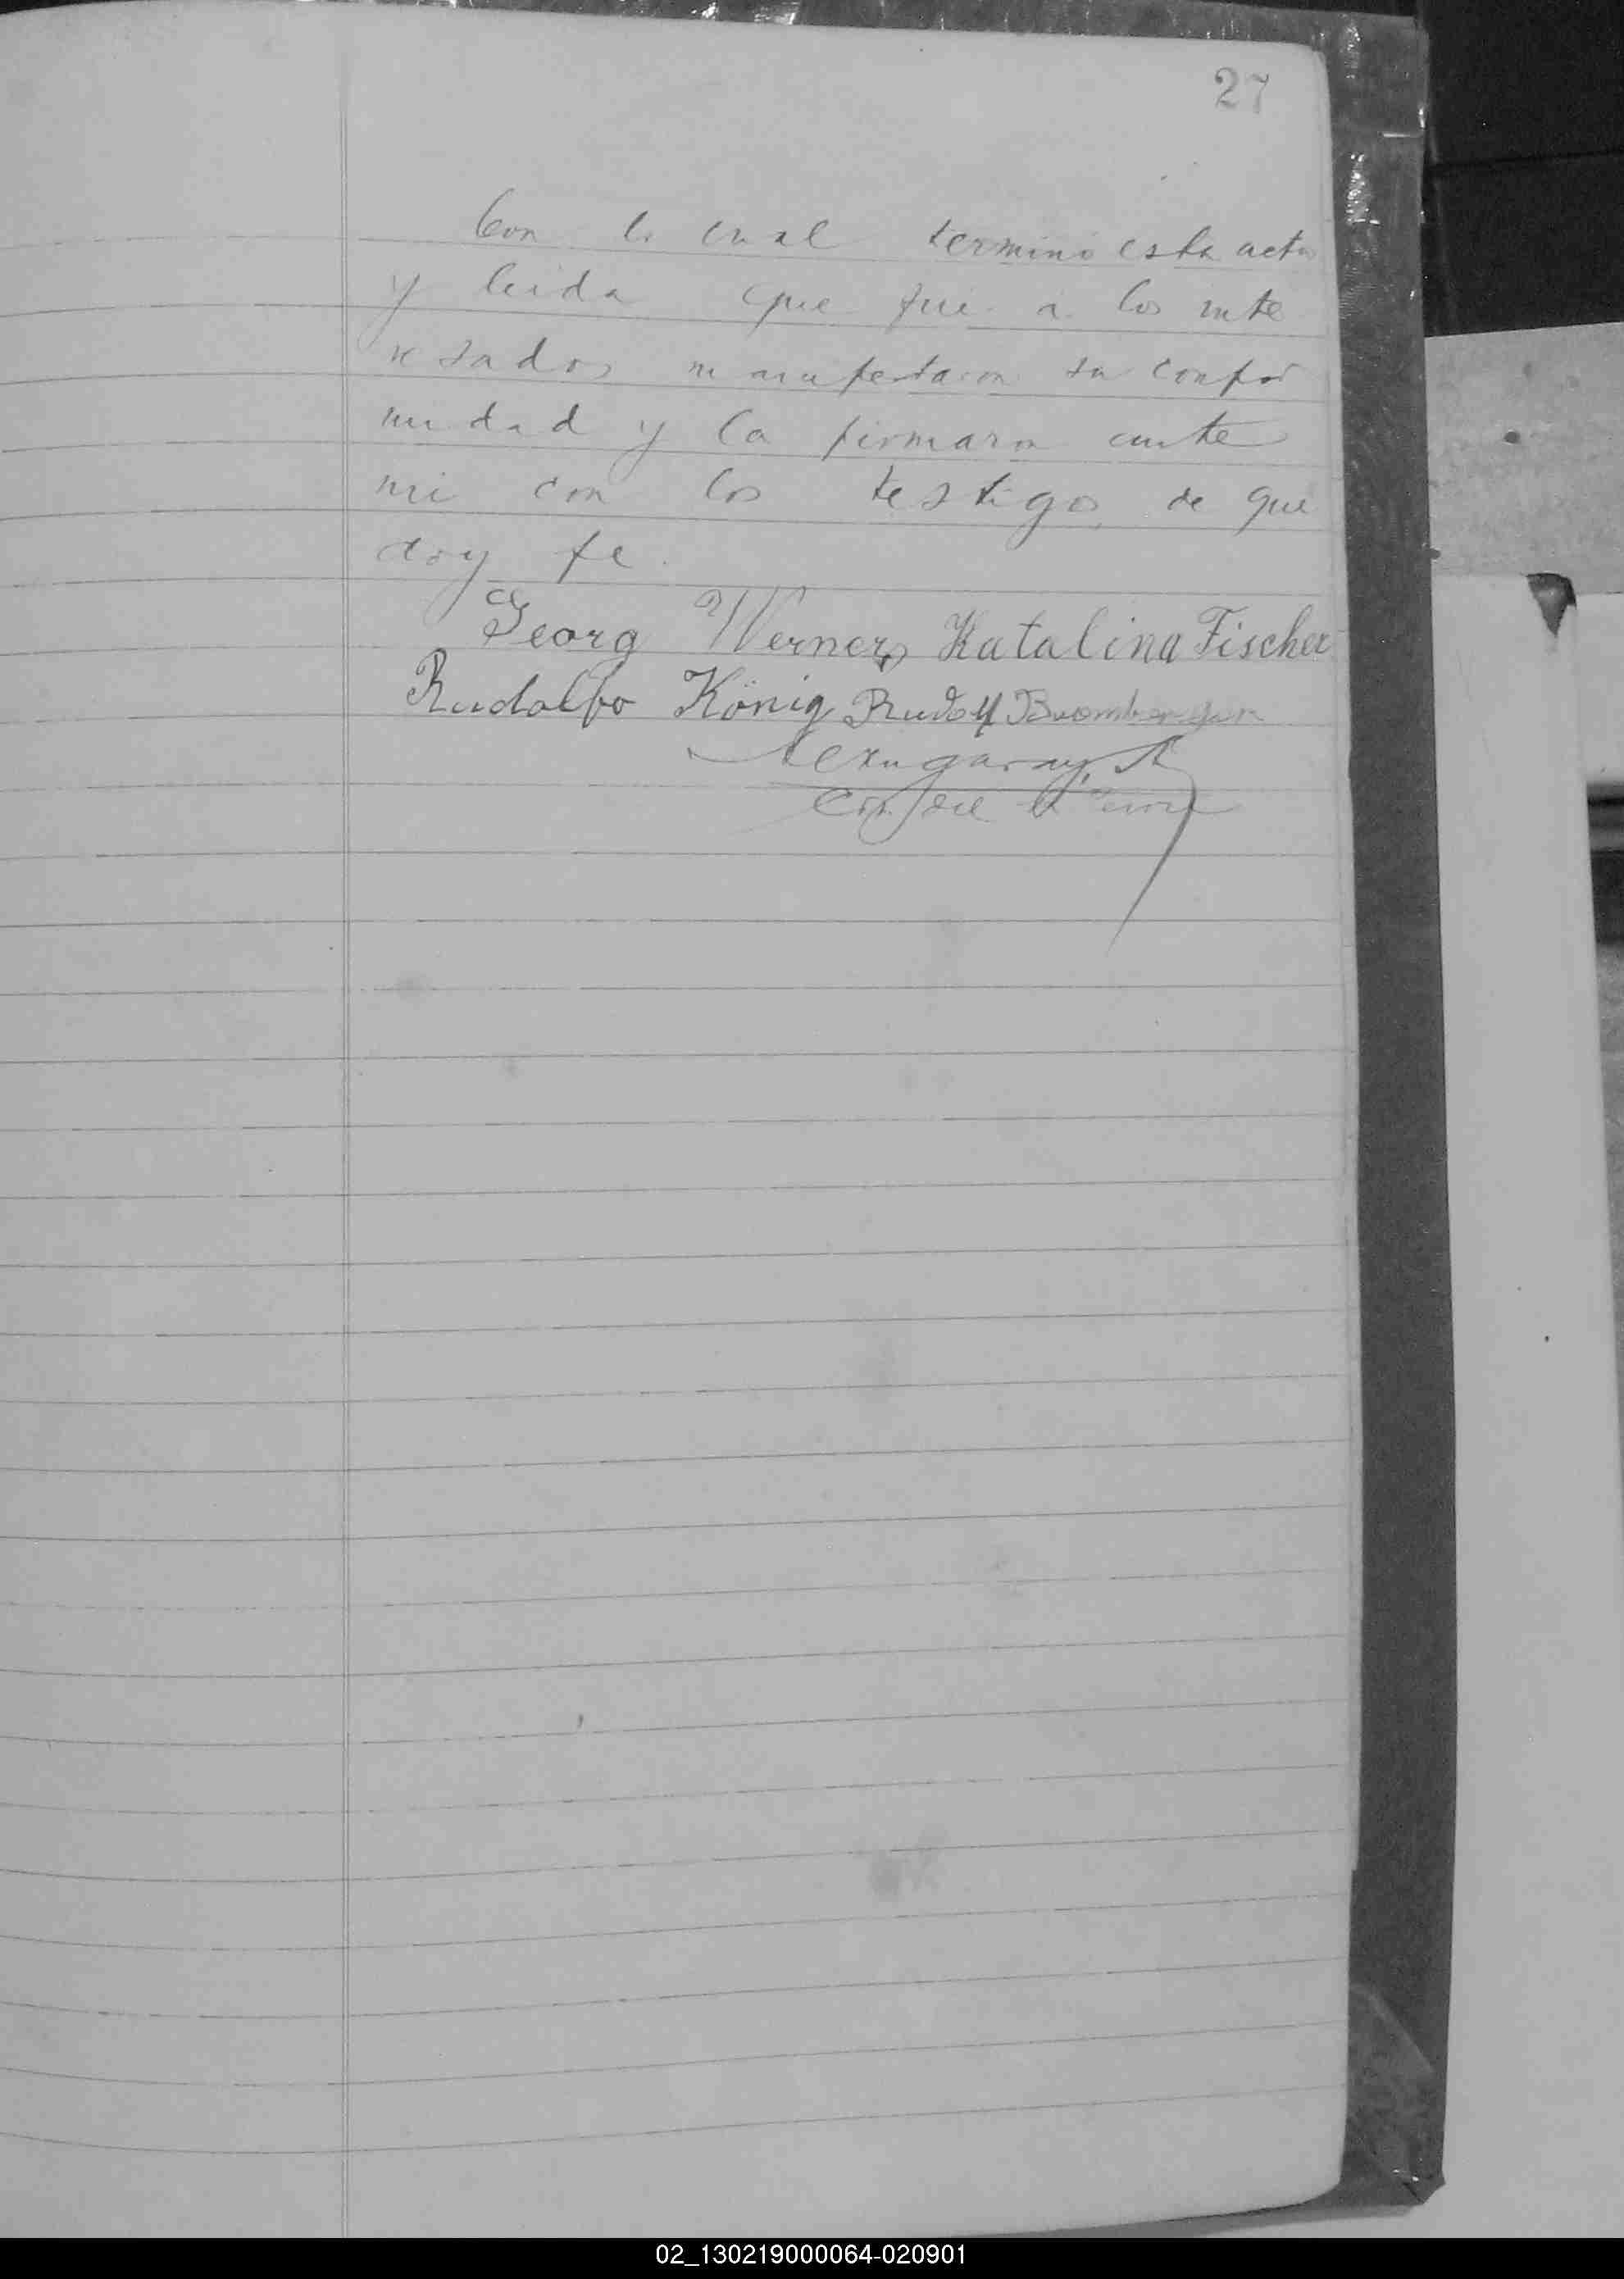 27
Con lo cual terminó esta acta
y leida que fue a los inte
resados manifestaron su confor
midad y la firmaron ante
mi con los testigos de que
doy fe.
Georg Werner Katalina Fischer
Rudolfo König Rudolf Bromberger
02_130219000064-020901